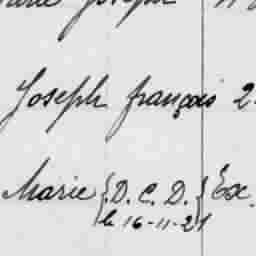 Joseph françois 2
Marie {D. C. D.} Ex.
le 16-11-21